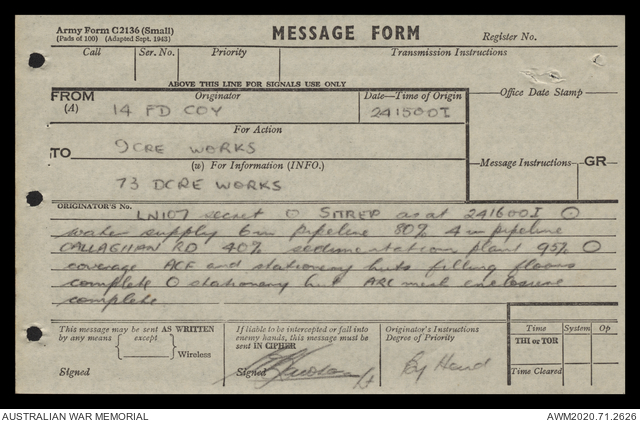 Army Form C2136 (Small)
(Pads of 100) (Adapted Sept. 1943)
MESSAGE FORM
Register No.
Call Ser. No. Priority Transmission Instructions
ABOVE THIS LINE FOR SIGNALS USE ONLY
FROM (A) Originator Date—Time of Origin Office Date Stamp
14 FD COY 241500I
For Action
TO DCRE WORKS
(w) For Information (INFO.) Message Instructions GR
73 DCRE WORKS
ORIGINATOR'S No.
LN107 secret O SITREP as at 241600I O
water supply 6 in pipeline 80% 4 in pipeline
CALLAGHAN RD 40% sedimentation plant 95% O
coverage ACF and stationery huts filling floors
complete O stationery hut enclosure
complete
This message may be sent AS WRITTEN
by any means except
Wireless
Signed
If liable to be intercepted or fall into
enemy hands, this message must be
sent IN CIPHER
Signed Lt
Originator's Instructions
Degree of Priority
By Hand
Time System Op
THI or TOR
Time Cleared
AUSTRALIAN WAR MEMORIAL AWM2020.71.2626